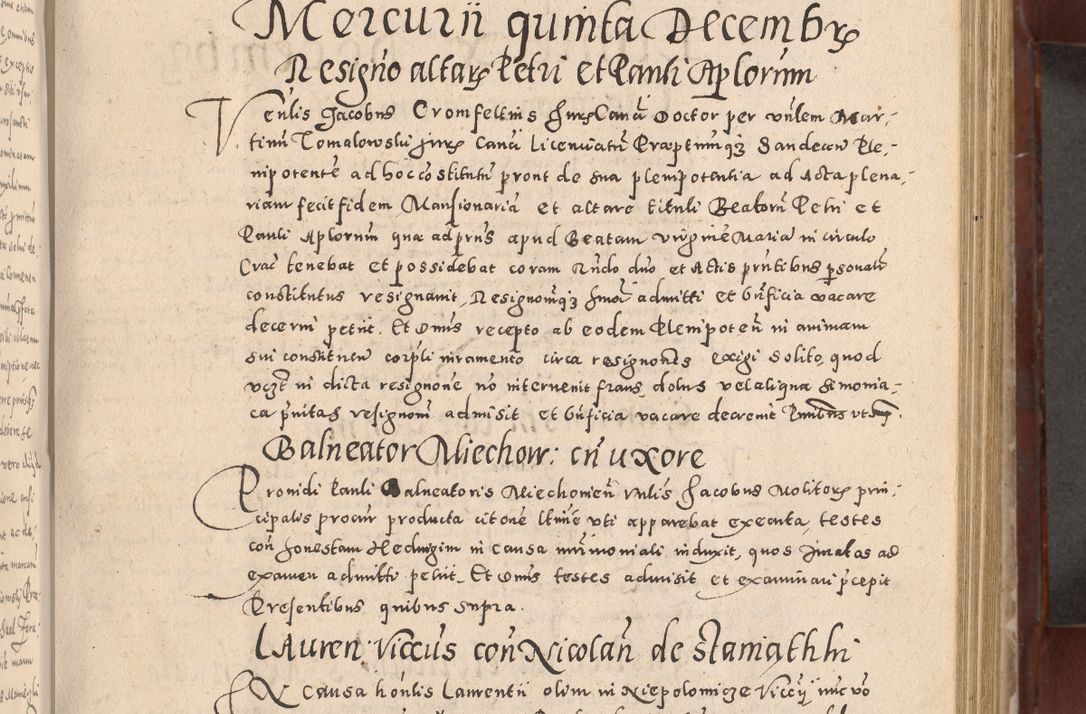 Mercurii quinta Decembr
Resigno altar Petri et Pauli Aplorum
Venlis Jacobus Cromfeltnis Jur Canoñ Doctor per vnlem Mar-
tinũ Tomalowski jur Canoñ Licenciatũ Præptumqz Sandecen Ple-
nipotentē ad hoc cōstitutũ pront de sua plenipotentia ad Acta plena-
riam fecit fidem Mansionariã et altare tituli Beatorũ Petri et
Pauli Aplorum quæ adprns apud Beatam virginē Mariã in circulo
Crac tenebat et possidebat coram Rndo dno et Actis pntibus psonalr
constitutus resignauit, Resignomqz hmoi admitti et bnficia vacare
decerni petiit. Et Dnus recepto ab eodem Plenipoteñ in animam
sui constituen corpli iuramento circa resignones exigi solito, quod
vczt in dicta resignone no interuenit fraus, dolus vel aliqua simonia-
ca pruitas resignom admisit et bnficia vacare decreuit Pntibus vt sup.
Balneator Miechow: cñ uxore
Prouidi Pauli Balneatoris Miechouieñ vnlis Jacobus Molitor prin-
cipalis procur producta citone ltme vti apparebat executa, testes
con honestam Hedwigim in causa mrimoniali induxit, quos iuratas ad
examen admitti petiit. Et Dnus testes admisit et examinari pcepit
Presentibus quibus supra.
Lauren: Viccus con Nicolaũ de Staniathki
In causa honlis Laurentii olim in Niepolomicze Viccij nuc vo